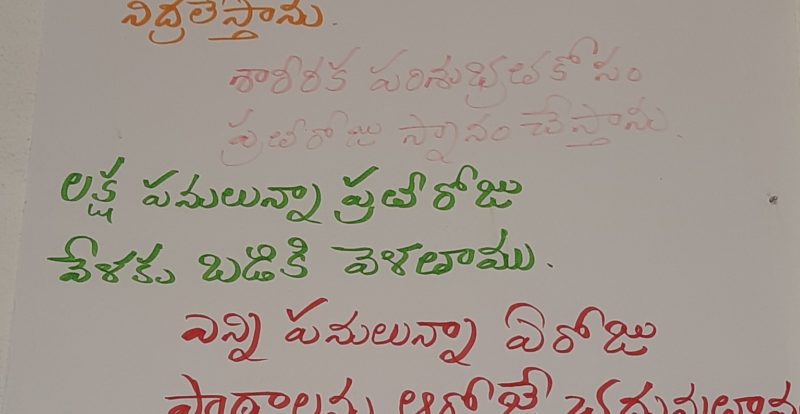 నిద్రలేస్తాను.
శారీరక పరిశుభ్రతకోసం
ప్రతీరోజు స్నానం చేస్తాను.
లక్ష పనులున్నా ప్రతీరోజు
వేళకు బడికి వెళతాము.
ఎన్ని పనులున్నా ఏరోజు
పాఠాలను ఆరోజే చదువుతాను